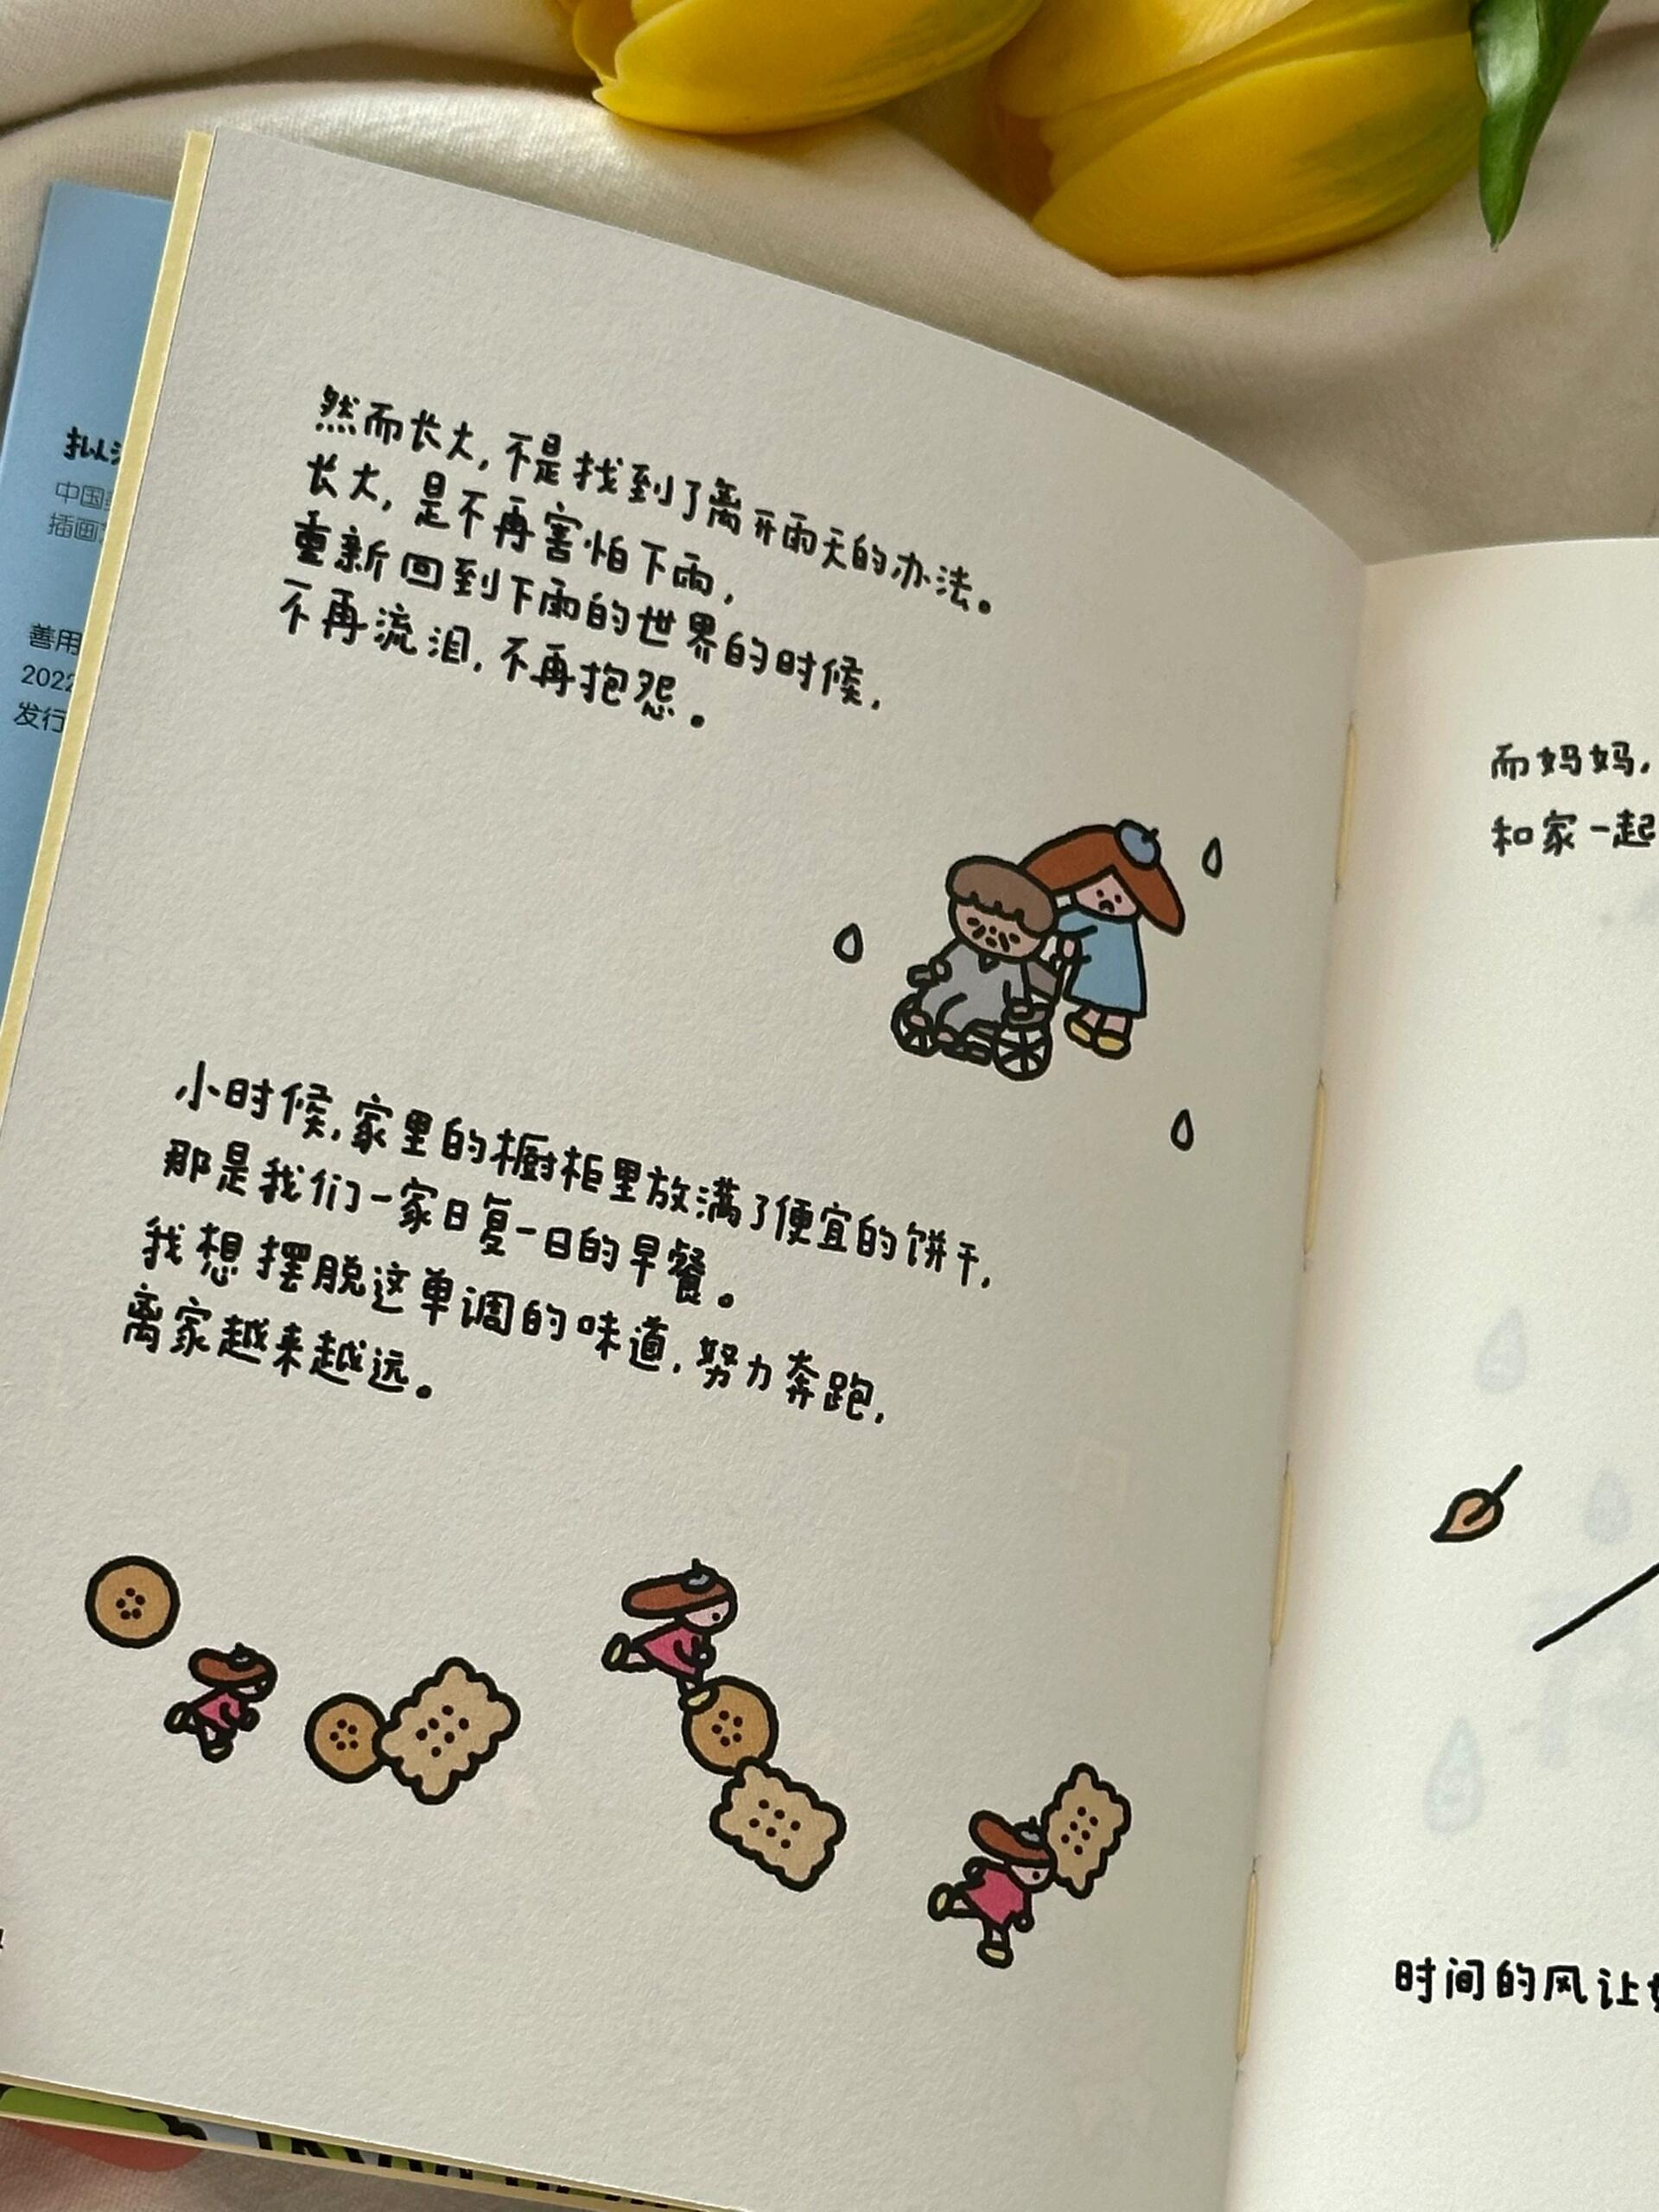 然而长大,不是找到了离开雨天的办法。
长大,是不再害怕下雨,
重新回到下雨的世界的时候,
不再流泪,不再抱怨。
小时候,家里的橱柜里放满了便宜的饼干,
那是我们一家日复一日的早餐。
我想摆脱这单调的味道,努力奔跑,
离家越来越远。
而妈妈,
和家一起
时间的风让
拟
中国
插画
善用
2022
发行